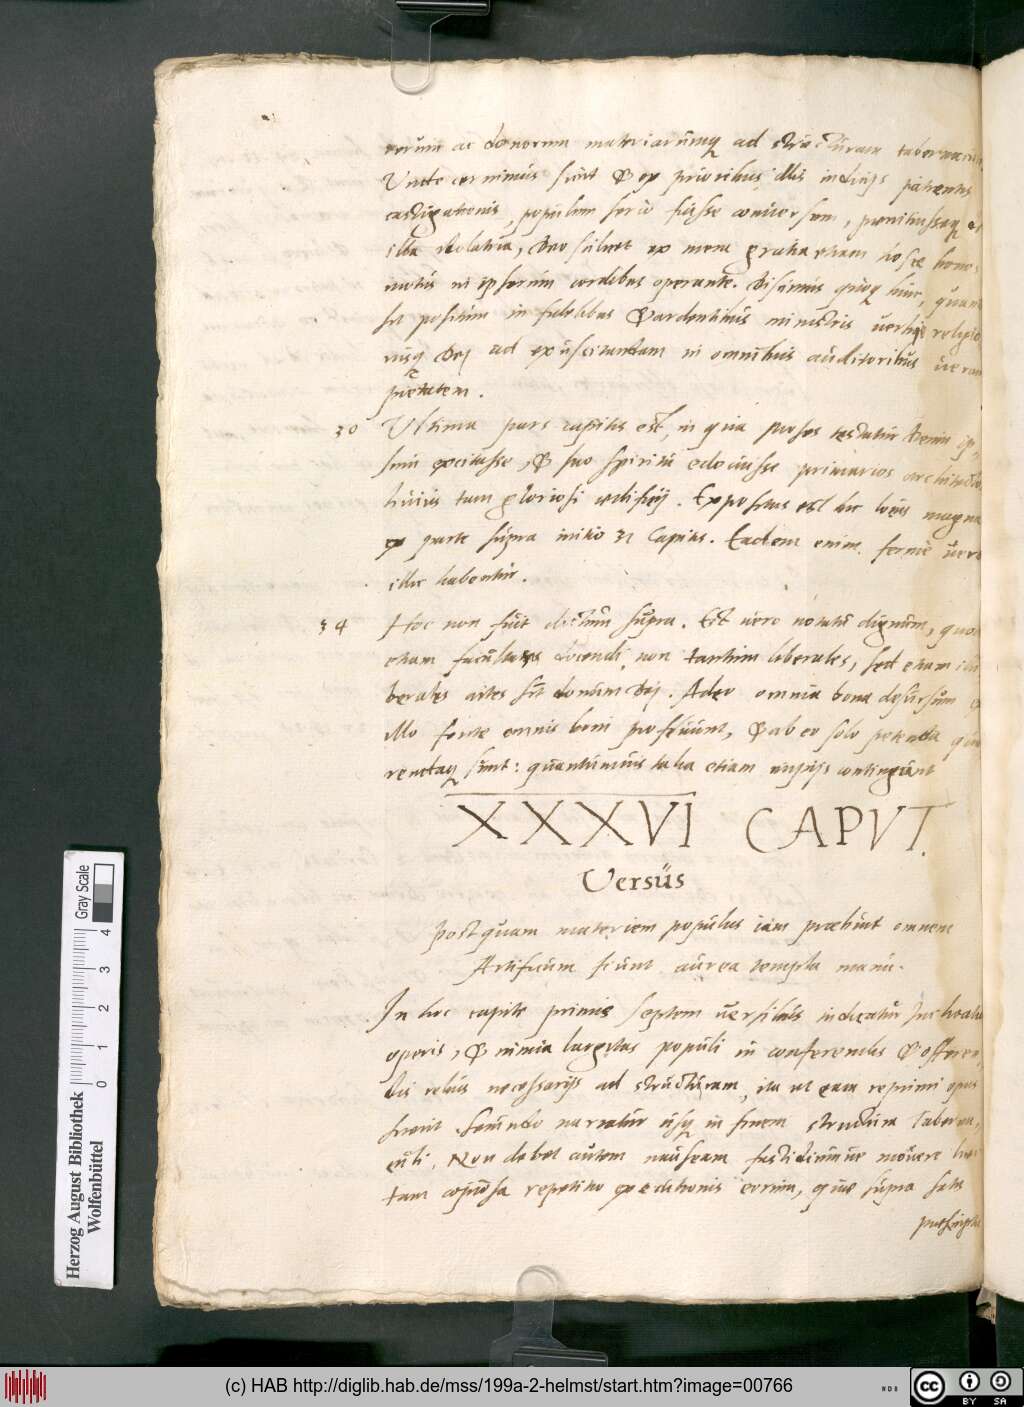 rerum ac donorum materiarumq ad structuram tabernaculi
Unde cernimus sint & ex prioribus illis indicijs patientis
castigationis, populum serio fuisse conuersum, penitussaq
illa idolatria, Deo scilicet ex mera gratia etiam hosce
motus in ipsorum cordibus operante. Discimus quoq hinc, quam
sit positum in fidelibus & ardentibus ministris uerbi religio
nisq Dei ad exuscitandam in omnibus auditoribus ueram
pietatem.
30 Ultima pars capitis est, in qua Moses testatur Deum ip
sum excitasse, & suo spiritu edocuisse primarios architectos
huius tam gloriosi aedificij. Expositus est hic locus magna
ex parte supra initio 31 Capitis. Eadem enim ferme uerba
illic habentur.
34 Hoc non fuit dictum supra. Est uero notatu dignum, quod
etiam facultates docendi non tantum liberales, sed etiam illi
berales artes sit donum Dei. Adeo omnia bona desursum ex
illo fonte omnis boni profluunt, & ab eo solo petenda quae
rendaq sunt: quantumuis talia etiam impijs contingant
XXXVI CAPVT.
Versus
Postquam materiem populus iam praebuit omnem
Artificum fiunt aurea templa manu.
In hoc capite primis septem uersibus indicatur Inchoatio
operis, & nimia largitas populi in conferendis & offeren
dis rebus necessarijs ad structuram, ita ut eam reprimi opus
fuerit. Secundo narratur usq in finem structura Taberna,
culi. Non debet autem nauseam fastidiumue mouere lec
tam copiosa repetitio expeditionis eorum, quae supra satis